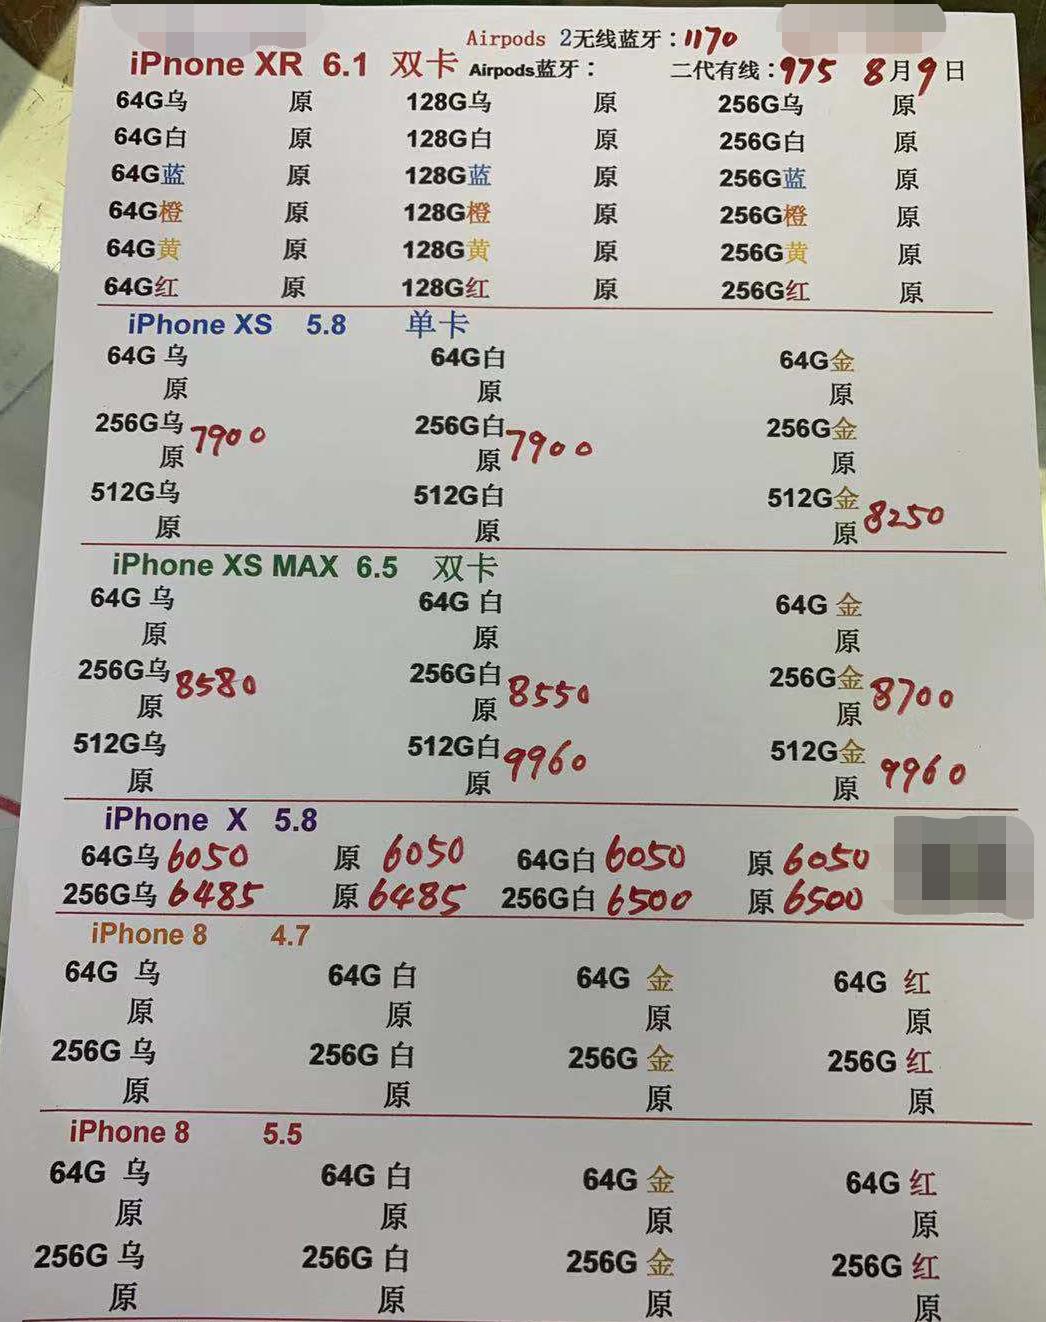 Airpods 2无线蓝牙：1170
iPnone XR 6.1 双卡 Airpods蓝牙： 二代有线：975 8月9日
64G乌 原 128G乌 原 256G乌 原
64G白 原 128G白 原 256G白 原
64G蓝 原 128G蓝 原 256G蓝 原
64G橙 原 128G橙 原 256G橙 原
64G黄 原 128G黄 原 256G黄 原
64G红 原 128G红 原 256G红 原
iPhone XS 5.8 单卡
64G 乌 64G白 64G金
原 原 原
256G乌 7900 256G白 7900 256G金
原 原 原
512G乌 512G白 512G金 8250
原 原 原
iPhone XS MAX 6.5 双卡
64G 乌 64G 白 64G 金
原 原 原
256G乌 8580 256G白 8550 256G金 8700
原 原 原
512G乌 512G白 9960 512G金 9960
原 原 原
iPhone X 5.8
64G乌 6050 原 6050 64G白 6050 原 6050
256G乌 6485 原 6485 256G白 6500 原 6500
iPhone 8 4.7
64G 乌 64G 白 64G 金 64G 红
原 原 原 原
256G 乌 256G 白 256G 金 256G 红
原 原 原 原
iPhone 8 5.5
64G 乌 64G 白 64G 金 64G 红
原 原 原 原
256G 乌 256G 白 256G 金 256G 红
原 原 原 原